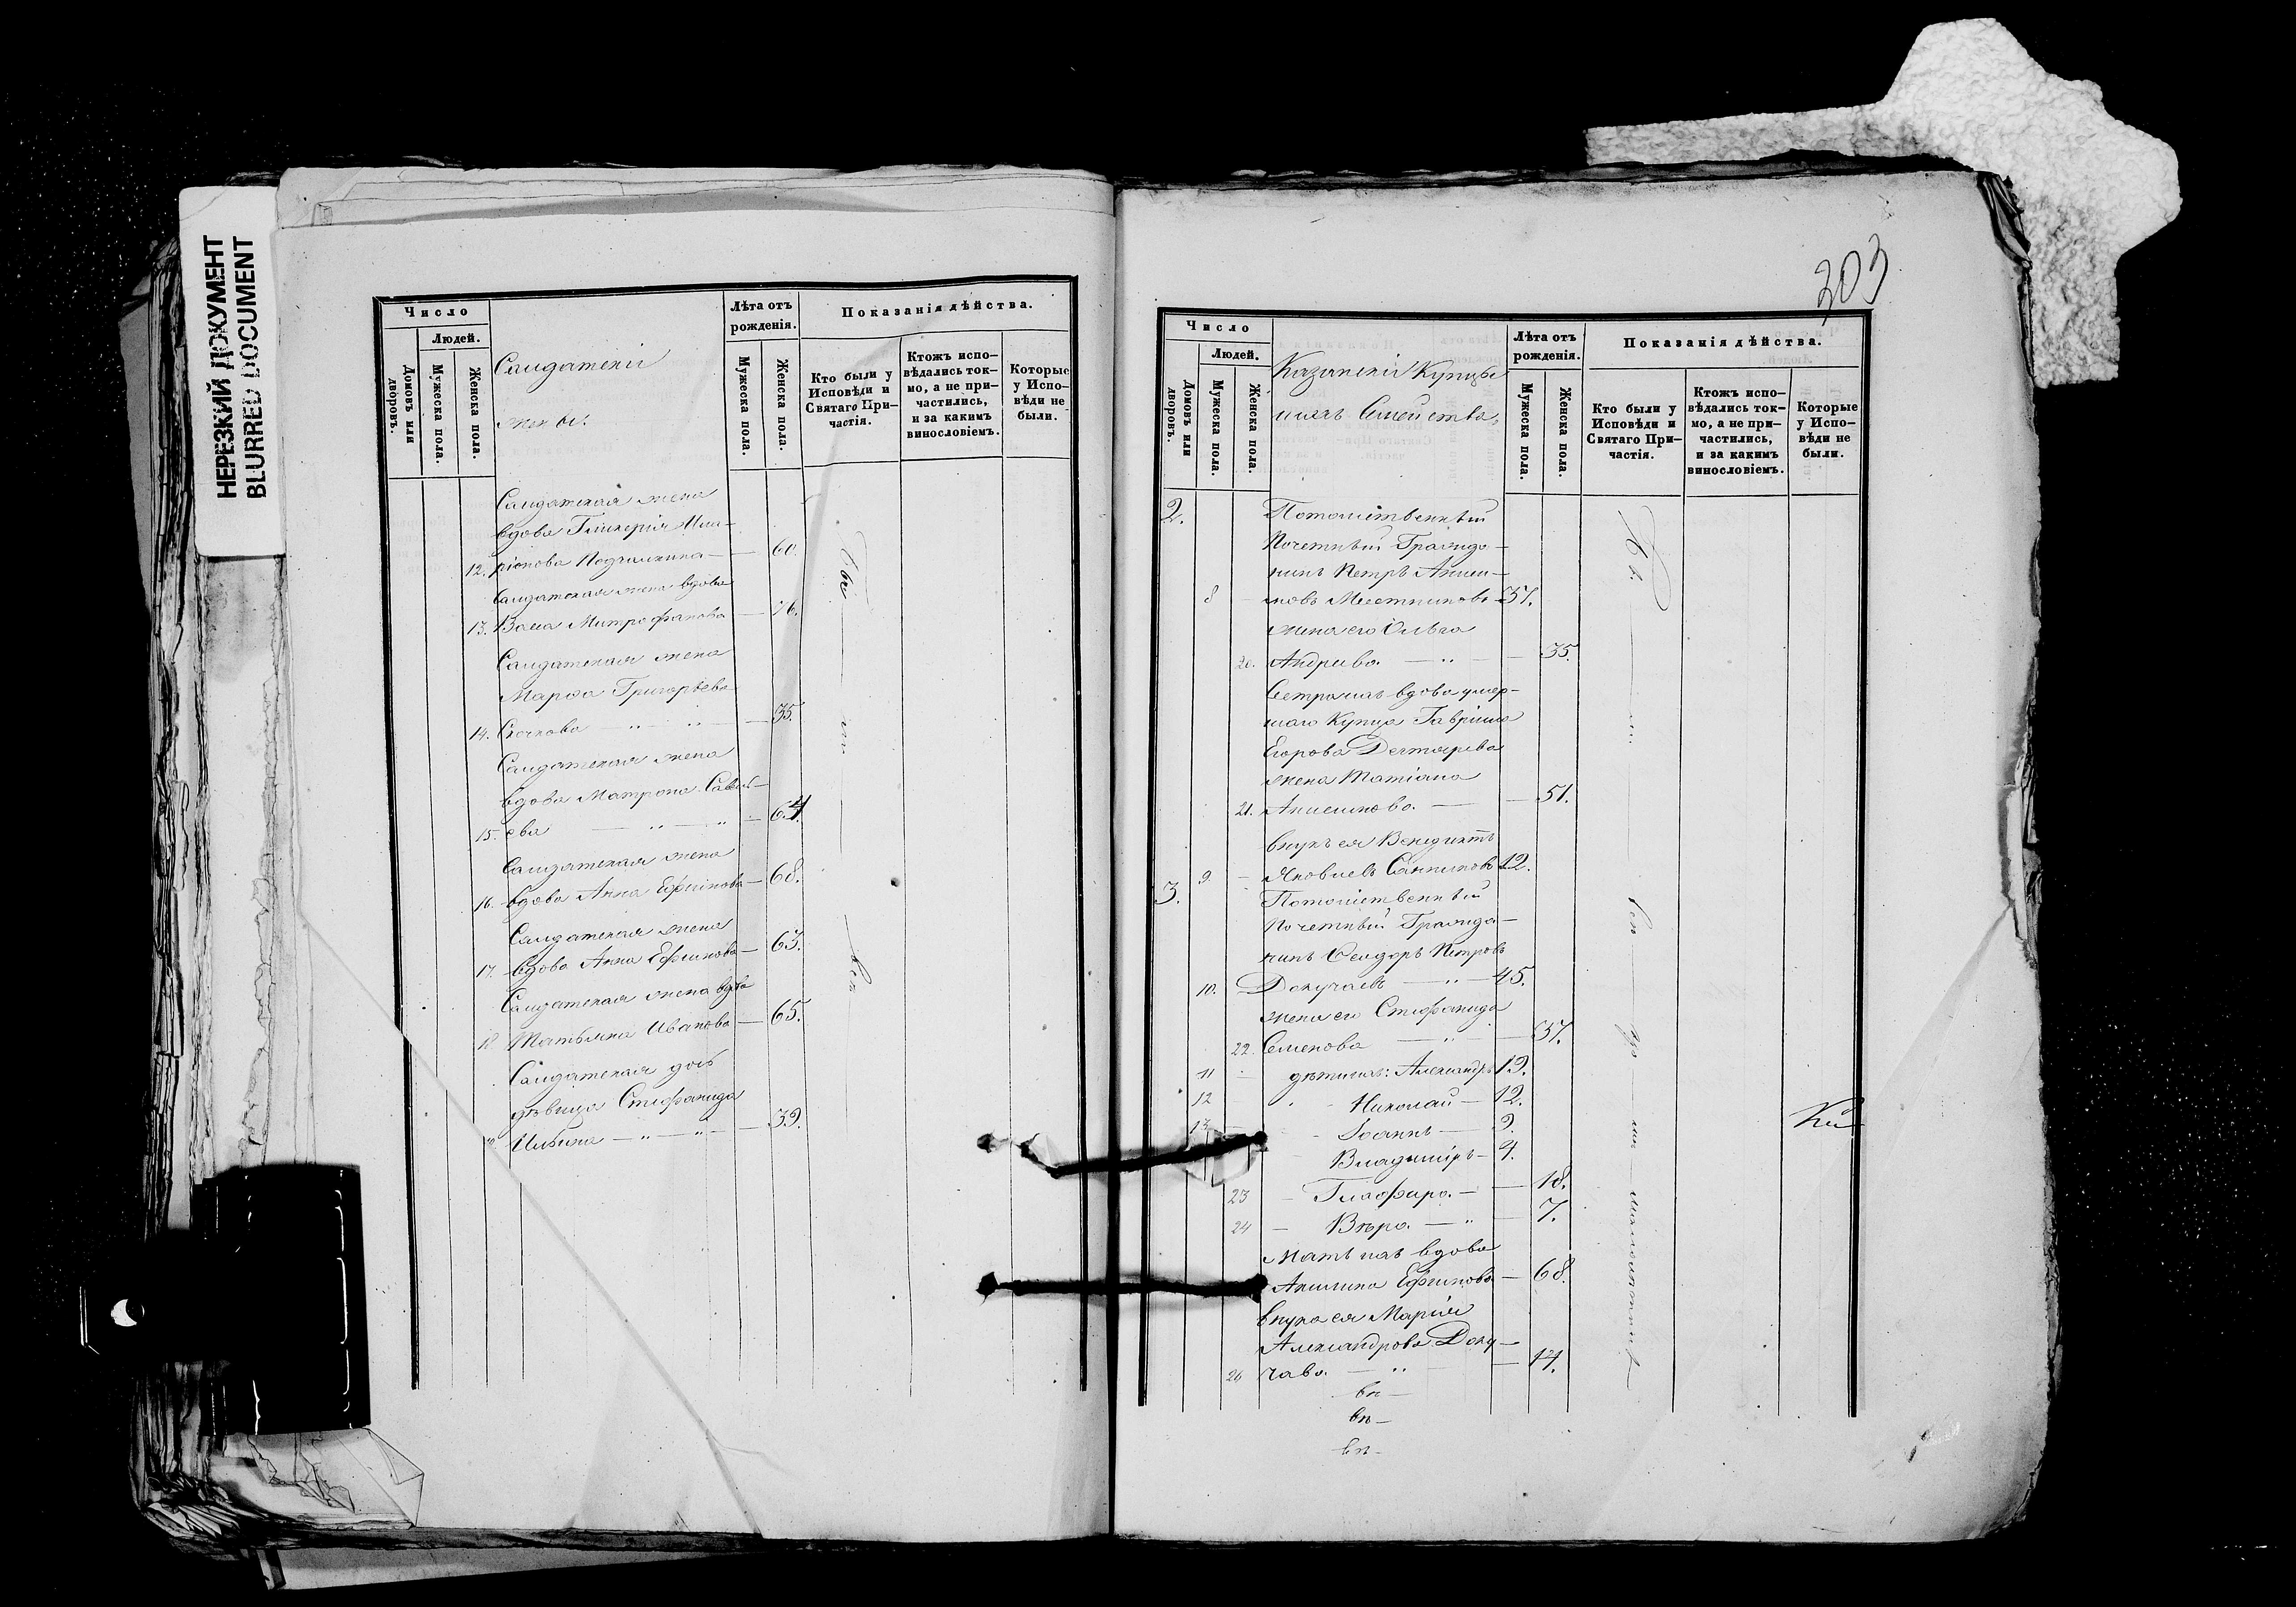 НЕРЕЗКИЙ ДОКУМЕНТ
BLURRED DOCUMENT
Число
Людей.
Домовъ или дворовъ.
Мужеска пола.
Женска пола.
Салдатскія
жены.
Лѣта отъ рожденія.
Мужеска пола.
Женска пола.
Показанія дѣйства.
Кто были у Исповѣди и Святаго Причастія.
Ктожъ исповѣдались токмо, а не причастились, и за какимъ винословіемъ.
Которые у Исповѣди не были.
Салдатская жена
вдова Гликерія Ила-
12. ріонова — 60.
Салдатская жена вдова
13. Митрофанова — 76.
Салдатская жена
Марѳа Григорьева
14. — " — " — 35.
Салдатская жена
вдова Матрона Савель-
15. ева — " — " — 64.
Салдатская жена
16. вдова Анна Ефимова — 68.
Салдатская жена
17. вдова Анна Ефимова — 63.
Салдатская жена вдова
18. Татьяна Иванова — 65.
Салдатская дочь
дѣвица Стефанида
Ильина — " — " — 39.
Бы — ли — всѣ
203
Число
Людей.
Домовъ или дворовъ.
Мужеска пола.
Женска пола.
Казанскіе Купцы
и ихъ Семейства.
Лѣта отъ рожденія.
Мужеска пола.
Женска пола.
Показанія дѣйства.
Кто были у Исповѣди и Святаго Причастія.
Ктожъ исповѣдались токмо, а не причастились, и за какимъ винословіемъ.
Которые у Исповѣди не были.
2. Потомственный
Почетный Гражда-
нинъ Петръ Аниси-
8 — мовъ Местниковъ — 57.
жена его Ольга
20. Андреева — " — 35.
Сестра ихъ вдова умер-
шаго Купца Гавріила
Егорова Дехтярева
жена Татіана
21. Анисимова — 51.
внукъ ея Венедиктъ
9. — Яковлевъ Санниковъ 12.
3. Потомственный
Почетный Гражда-
нинъ Сидоръ Петровъ
10. Докучаевъ — " — 45.
жена его Стефанида
22. Семенова — " — 37.
11 — дѣти ихъ: Александръ 19.
12 — Николай — 12.
13 — Іоаннъ — 9.
Владиміръ — 4.
23 — Глафира — 18.
24 — Вѣра — " — 7.
Мать ихъ вдова
Акилина Ефимова — 68.
внука ея Марія
Александрова Доку-
26 чаева — " — 14.
вѣ —
вѣ —
вѣ —